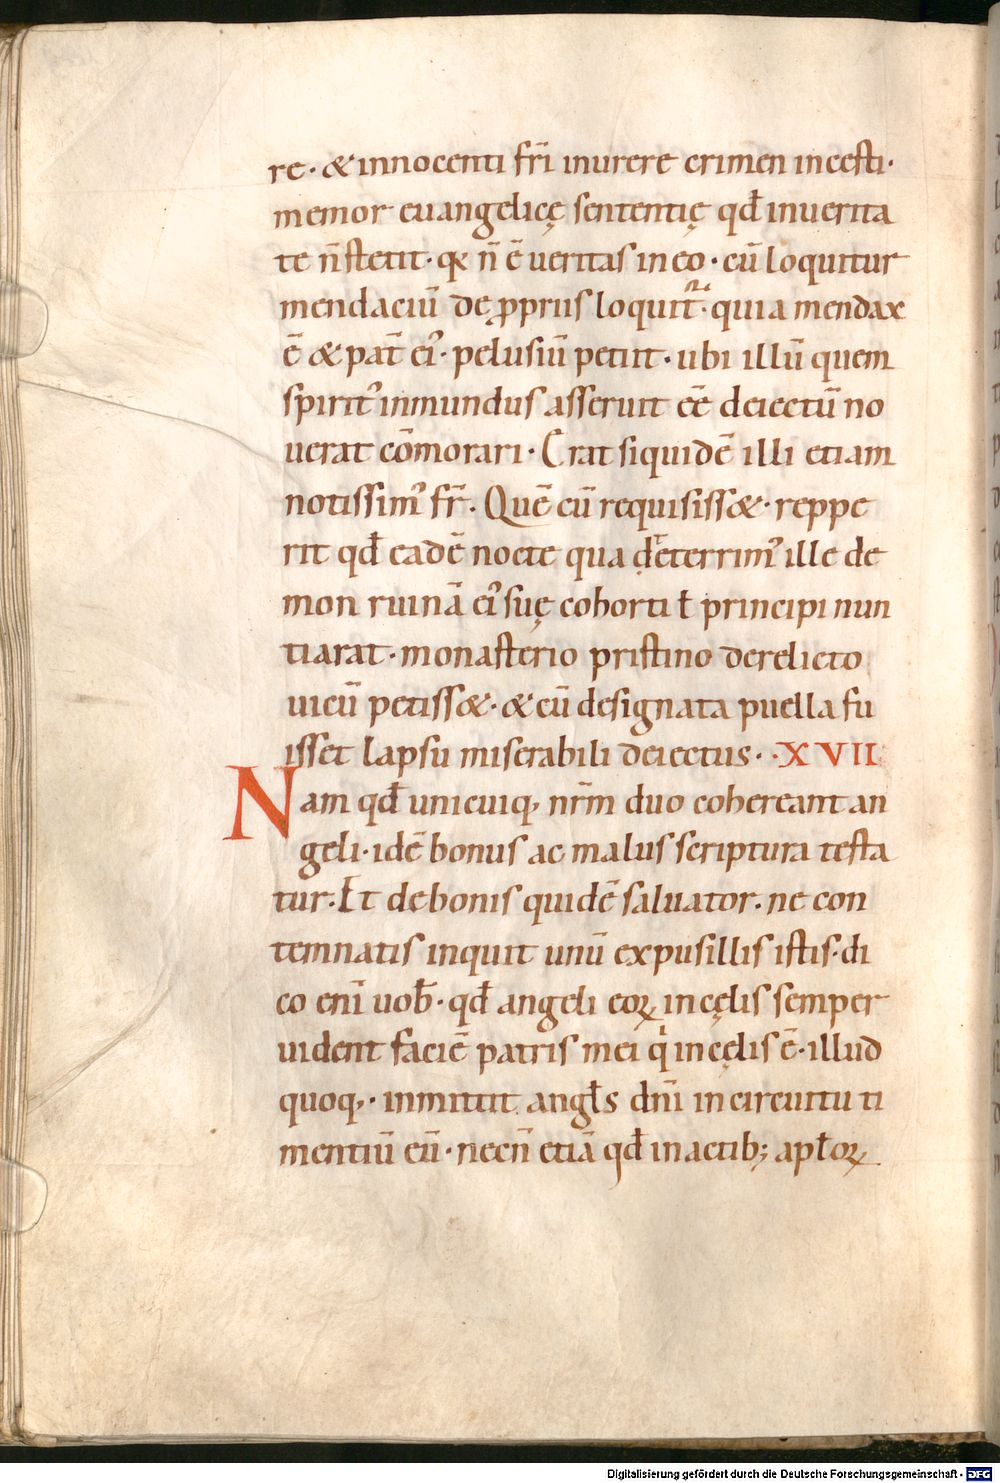 re· & innocenti fr̄i inurere crimen incesti·
memor euangelicę sententię qđ inuerita
te n̄ stetit· qꝛ n̄ ē ueritas in eo· cū loquitur
mendaciū de ꝓpriis loquit̄· quia mendax
ē & pat̄ ei᾽· pelusiū petiit· ubi illū quem
spirit᾽ inmundus asseruit eē deiectū no
uerat cōmorari· Erat siquidē illi etiam
notissim᾽ fr̄. Quē cū requisiss&· reppe
rit qđ eadē nocte qua deterrim᾽ ille de
mon ruinā ei᾽ suę cohorti ł principi nun
tiarat· monasterio pristino derelicto
uicū petiss&· & cū designata puella fu
isset lapsu miserabili deiectus· ·XVII
Nam qđ unicuiq, nr̄m duo cohereant an
geli· idē bonus ac malus scriptura testa
tur· Et de bonis quidē saluator. ne con
temnatis inquit unū ex pusillis istis· di
co enī uob̄· qđ angeli eoꝝ in cęlis semper
uident faciē patris mei q̇ in cęlis ē· illud
quoq,· inmittit angl̄s dn̄i in circuitu ti
mentiū eū· necn̄ etiā qđ in actib; apl̄oꝝ
Digitalisierung gefördert durch die Deutsche Forschungsgemeinschaft - DFG